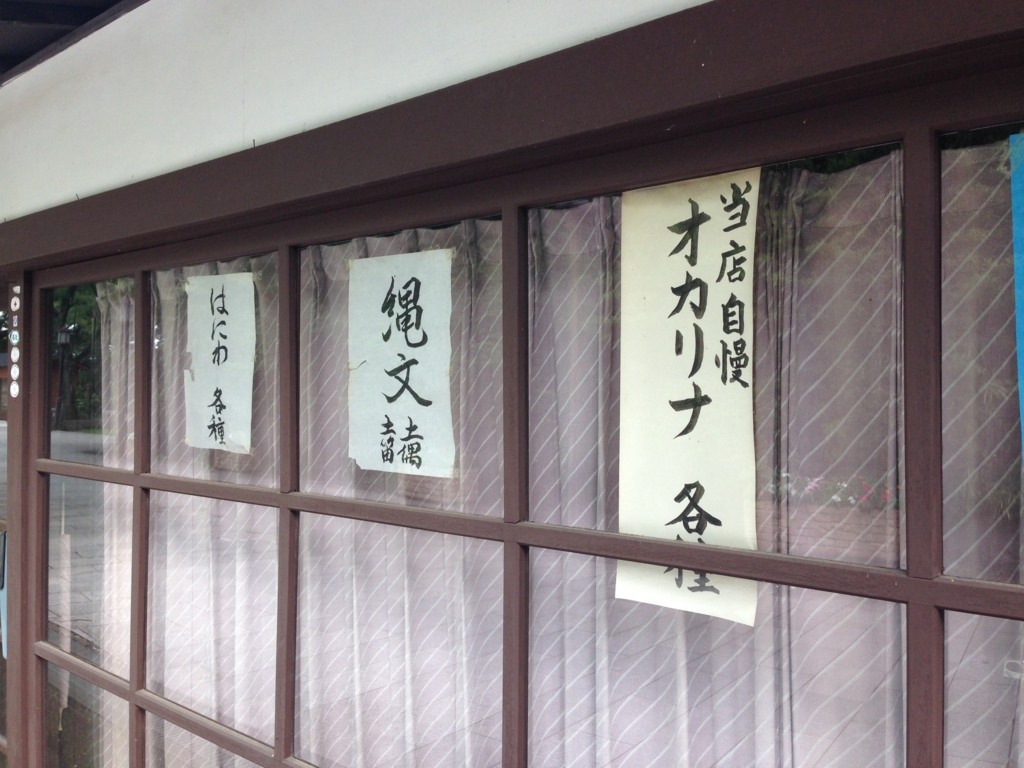 当店自慢
オカリナ 各種
縄文
土偶
はにわ 各種